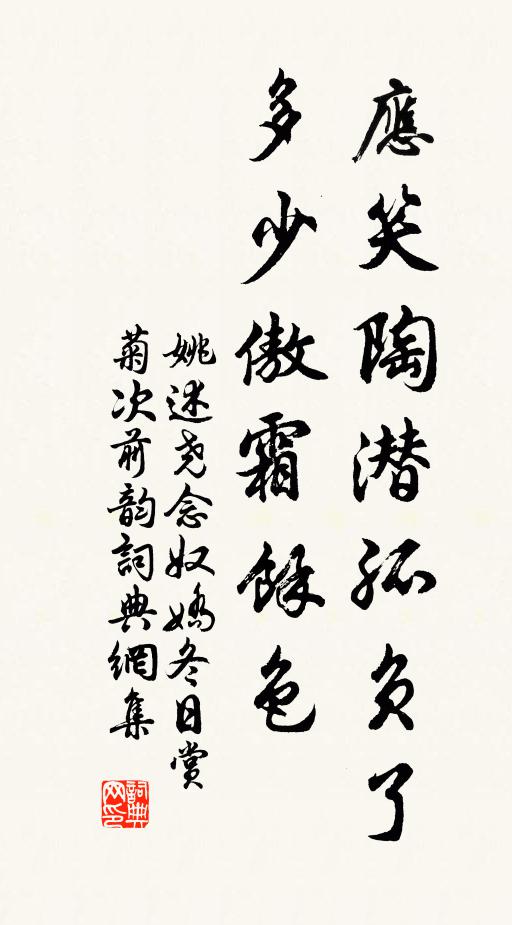 應笑陶潜孤负了
多少傲霜餘色
姚述尧念奴嬌冬日賞
菊次前韵詞典網集
詞典网印